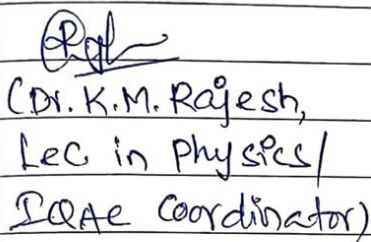 (Dr. K.M. Rajesh,
Lec in Physics/
IQAC Coordinator)